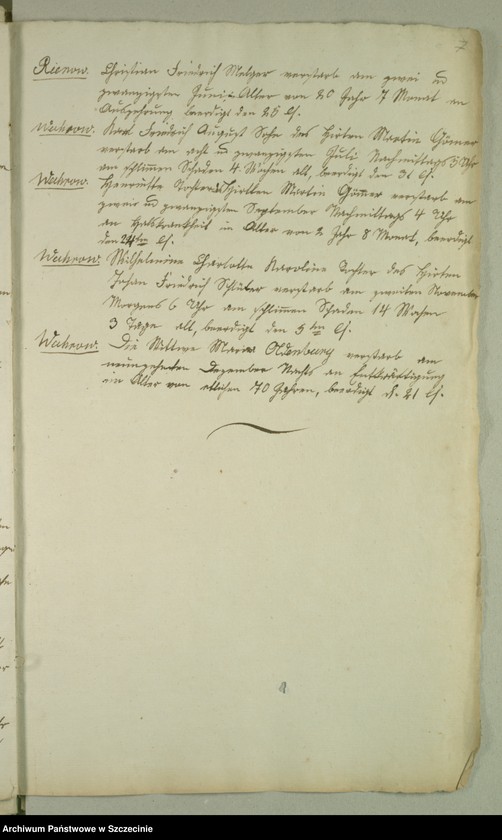 7
Rienow. Christian Friedrich Metzer verstarb am zwei u
zwanzigsten Juni. Alter von 20 Jahr 7 Monat an
Auszehrung beerdigt den 26 Cs.
Wuhrow. Karl Friedrich August Sohn des Hirten Martin Gömer
verstarb am acht u zwanzigsten Juli Nachmittags 3 Uhr
am schlimmen Schaden 4 Wochen alt, beerdigt den 31 Cs.
Wuhrow. Henriette Tochter des Hirten Martin Gömer verstarb am
zwei u zwanzigsten September Nachmittags 4 Uhr
an Halskrankheit im Alter von 2 Jahr 8 Monat, beerdigt
den 24ten Cs.
Wuhrow. Wilhelmine Charlotte Karoline Tochter des Hirten
Johan Friedrich Schlüter verstarb am zweiten November
Morgens 6 Uhr am schlimmen Schaden 14 Wochen
3 Tage alt, beerdigt den 5ten Cs.
Wuhrow. Die Wittwe Maria Oldenburg verstarb am
neunzehnten Dezember Nachts an Entkräftigung
im Alter von etlichen 70 Jahren, beerdigt d. 21 Cs.
Archiwum Państwowe w Szczecinie